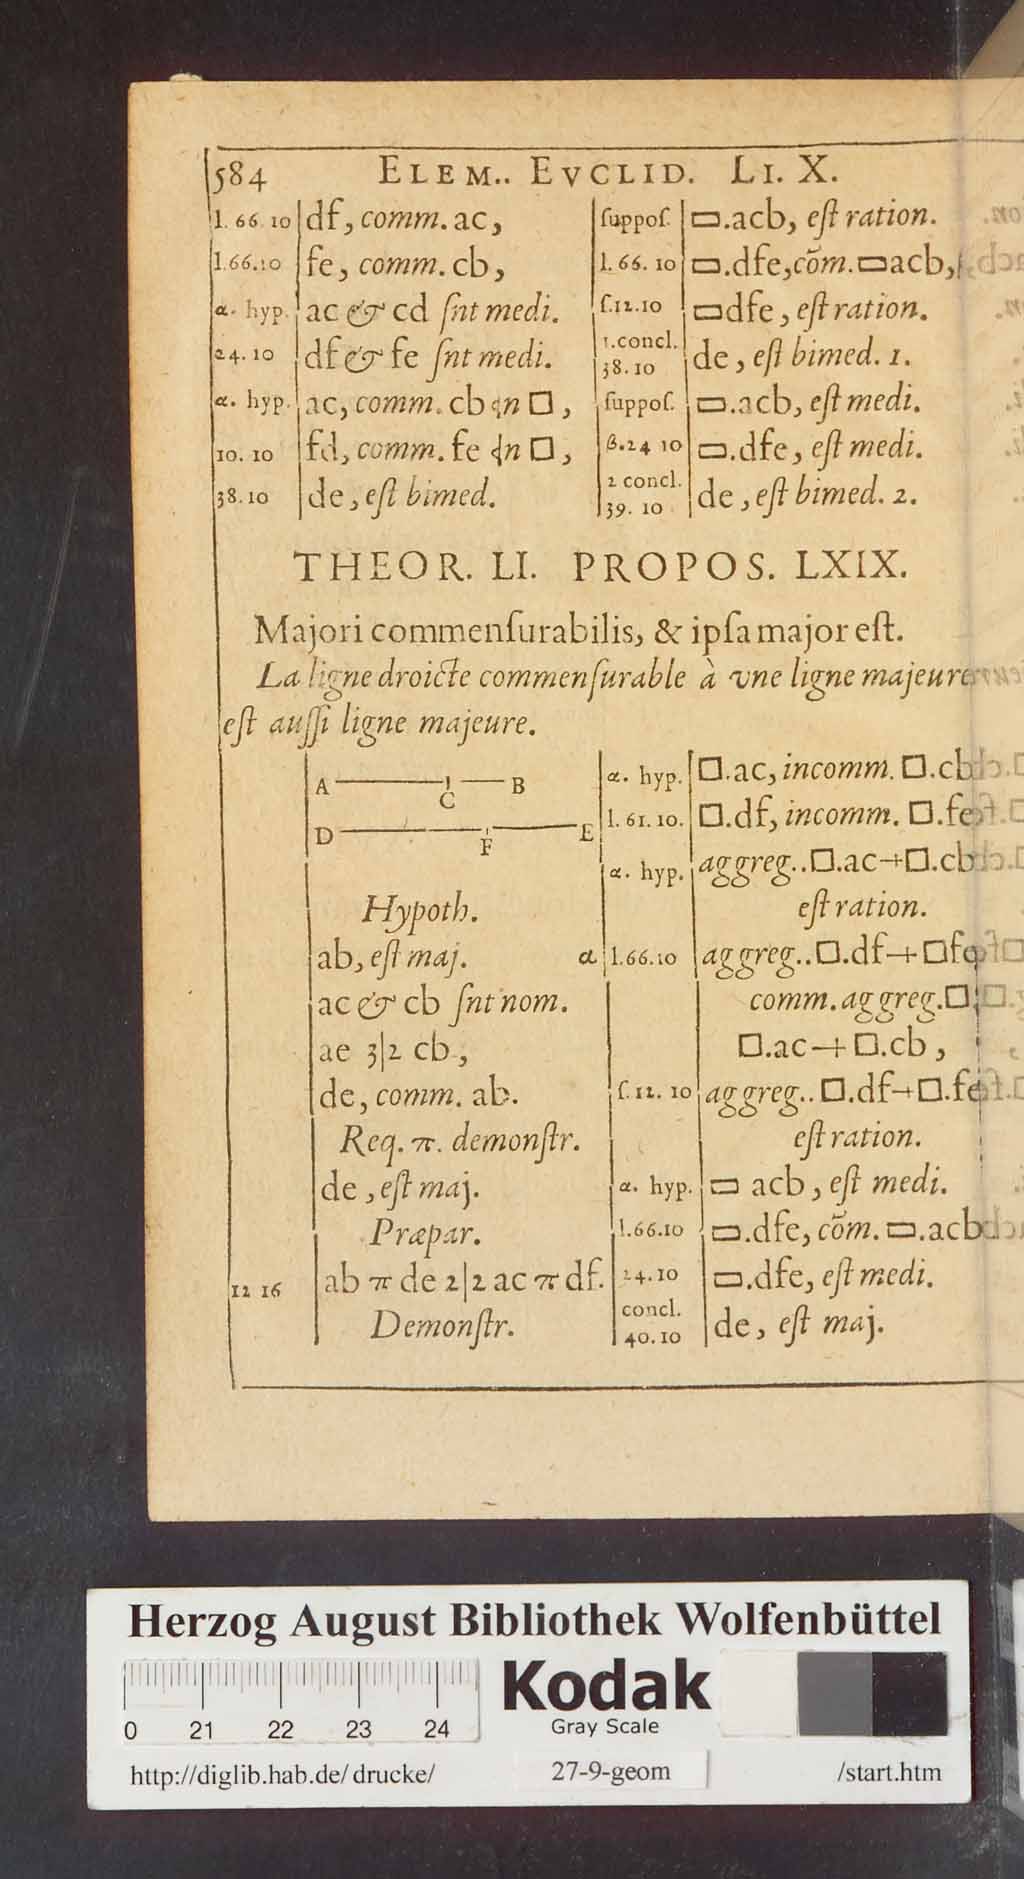 584 ELEM.. EVCLID. LI. X.
l. 66. 10 df, comm. ac,
l.66.10 fe, comm. cb,
α. hyp. ac & cd ſnt medi.
24. 10 df & fe ſnt medi.
α. hyp. ac, comm. cb □,
10. 10 fd, comm. fe □,
38. 10 de, eſt bimed.
ſuppoſ. ▭.acb, eſt ration.
l. 66. 10 ▭.dfe, cõm. ▭acb,
ſ.12.10 ▭dfe, eſt ration.
1.concl.
38. 10 de, eſt bimed. 1.
ſuppoſ. ▭.acb, eſt medi.
β.24 10 ▭.dfe, eſt medi.
2 concl.
39. 10 de, eſt bimed. 2.
THEOR. LI. PROPOS. LXIX.
Majori commenſurabilis, & ipſa major eſt.
La ligne droicte commenſurable à vne ligne majeure
eſt auſſi ligne majeure.
A C B
D F E
Hypoth.
ab, eſt maj.
ac & cb ſnt nom.
ae 3|2 cb,
de, comm. ab.
Req. π. demonſtr.
de, eſt maj.
Præpar.
12 16 ab π de 2|2 ac π df.
Demonſtr.
α. hyp. □.ac, incomm. □.cb
l. 61. 10. □.df, incomm. □.fe
α. hyp. aggreg..□.ac+□.cb
eſt ration.
α l.66.10 aggreg..□.df+□fe
comm. aggreg.□
□.ac+□.cb,
ſ. 12. 10 aggreg..□.df+□.fe
eſt ration.
α. hyp. ▭ acb, eſt medi.
l.66.10 ▭.dfe, cõm. ▭.acb
24.10 ▭.dfe, eſt medi.
concl.
40.10 de, eſt maj.
Herzog August Bibliothek Wolfenbüttel
0 21 22 23 24
Kodak
Gray Scale
http://diglib.hab.de/drucke/ 27-9-geom /start.htm